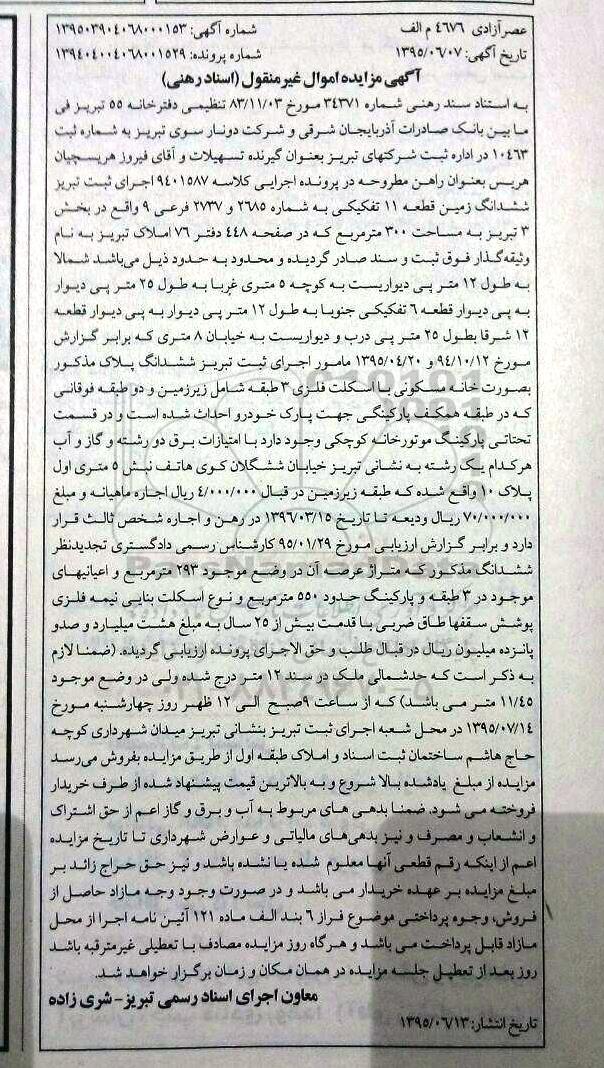 عصرآزادی ۴۶۷۶ م الف
شماره آگهی: ۱۳۹۵۰۳۹۰۴۰۶۸۰۰۰۱۵۳
تاریخ آگهی: ۱۳۹۵/۰۶/۰۷
شماره پرونده: ۱۳۹۴۰۴۰۰۴۰۶۸۰۰۱۵۲۹
آگهی مزایده اموال غیرمنقول (اسناد رهنی)
به استناد سند رهنی شماره ۳۴۳۷۱ مورخ ۸۳/۱۱/۰۳ تنظیمی دفترخانه ۵۵ تبریز فی
ما بین بانک صادرات آذربایجان شرقی و شرکت دونار سوی تبریز به شماره ثبت
۱۰۴۶۳ در اداره ثبت شرکتهای تبریز بعنوان گیرنده تسهیلات و آقای فیروز هریسچیان
هریس بعنوان راهن مطروحه در پرونده اجرایی کلاسه ۹۴۰۱۵۸۷ اجرای ثبت تبریز
ششدانگ زمین قطعه ۱۱ تفکیکی به شماره ۲۶۸۵ و ۲۷۳۷ فرعی ۹ واقع در بخش
۳ تبریز به مساحت ۳۰۰ مترمربع که در صفحه ۴۴۸ دفتر ۷۶ املاک تبریز به نام
وثیقه‌گذار فوق ثبت و سند صادر گردیده و محدود به حدود ذیل می‌باشد شمالا
به طول ۱۲ متر پی دیواریست به کوچه ۵ متری غربا به طول ۲۵ متر پی دیوار
به پی دیوار قطعه ۶ تفکیکی جنوبا به طول ۱۲ متر پی دیوار به پی دیوار قطعه
۱۲ شرقا بطول ۲۵ متر پی درب و دیواریست به خیابان ۸ متری که برابر گزارش
مورخ ۹۴/۱۰/۱۲ و ۱۳۹۵/۰۴/۲۰ مامور اجرای ثبت تبریز ششدانگ پلاک مذکور
بصورت خانه مسکونی با اسکلت فلزی ۳ طبقه شامل زیرزمین و دو طبقه فوقانی
که در طبقه همکف پارکینگی جهت پارک خودرو احداث شده است و در قسمت
تحتانی پارکینگ موتورخانه کوچکی وجود دارد با امتیازات برق دو رشته و گاز و آب
هرکدام یک رشته به نشانی تبریز خیابان ششگلان کوی هاتف نبش ۵ متری اول
پلاک ۱۰ واقع شده که طبقه زیرزمین در قبال ۴/۰۰۰/۰۰۰ ریال اجاره ماهیانه و مبلغ
۷۰/۰۰۰/۰۰۰ ریال ودیعه تا تاریخ ۱۳۹۶/۰۳/۱۵ در رهن و اجاره شخص ثالث قرار
دارد و برابر گزارش ارزیابی مورخ ۹۵/۰۱/۲۹ کارشناس رسمی دادگستری تجدیدنظر
ششدانگ مذکور که متراژ عرصه آن در وضع موجود ۲۹۳ مترمربع و اعیانیهای
موجود در ۳ طبقه و پارکینگ حدود ۵۵۰ مترمربع و نوع اسکلت بنایی نیمه فلزی
پوشش سقفها طاق ضربی با قدمت بیش از ۲۵ سال به مبلغ هشت میلیارد و صدو
پانزده میلیون ریال در قبال طلب و حق الاجرای پرونده ارزیابی گردیده. (ضمنا لازم
به ذکر است که حدشمالی ملک در سند ۱۲ متر درج شده ولی در وضع موجود
۱۱/۴۵ متر می باشد) که از ساعت ۹صبح الی ۱۲ ظهر روز چهارشنبه مورخ
۱۳۹۵/۰۷/۱۴ در محل شعبه اجرای ثبت تبریز بنشانی تبریز میدان شهرداری کوچه
حاج هاشم ساختمان ثبت اسناد و املاک طبقه اول از طریق مزایده بفروش می‌رسد
مزایده از مبلغ یادشده بالا شروع و به بالاترین قیمت پیشنهاد شده از طرف خریدار
فروخته می شود. ضمنا بدهی های مربوط به آب و برق و گاز اعم از حق اشتراک
و انشعاب و مصرف و نیز بدهی‌های مالیاتی و عوارض شهرداری تا تاریخ مزایده
اعم از اینکه رقم قطعی آنها معلوم شده یا نشده باشد و نیز حق حراج زائد بر
مبلغ مزایده بر عهده خریدار می باشد و در صورت وجود وجه مازاد حاصل از
فروش، وجوه پرداختی موضوع فراز ۶ بند الف ماده ۱۲۱ آئین نامه اجرا از محل
مازاد قابل پرداخت می باشد و هرگاه روز مزایده مصادف با تعطیلی غیرمترقبه باشد
روز بعد از تعطیل جلسه مزایده در همان مکان و زمان برگزار خواهد شد.
معاون اجرای اسناد رسمی تبریز- شری زاده
تاریخ انتشار: ۱۳۹۵/۰۶/۱۳